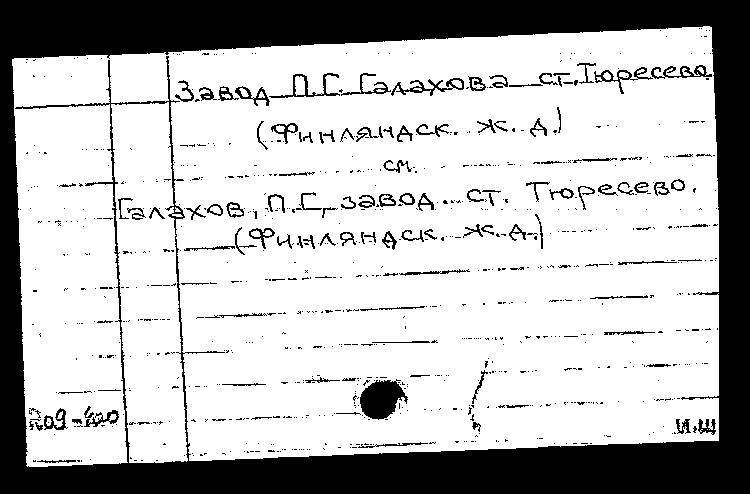 Завод П.Г. Галахова ст. Тюресево
(Финляндск. ж. д.)
см.
Галахов, П.Г, завод. ст. Тюресево.
(Финляндск. ж.д.)
И.Ш